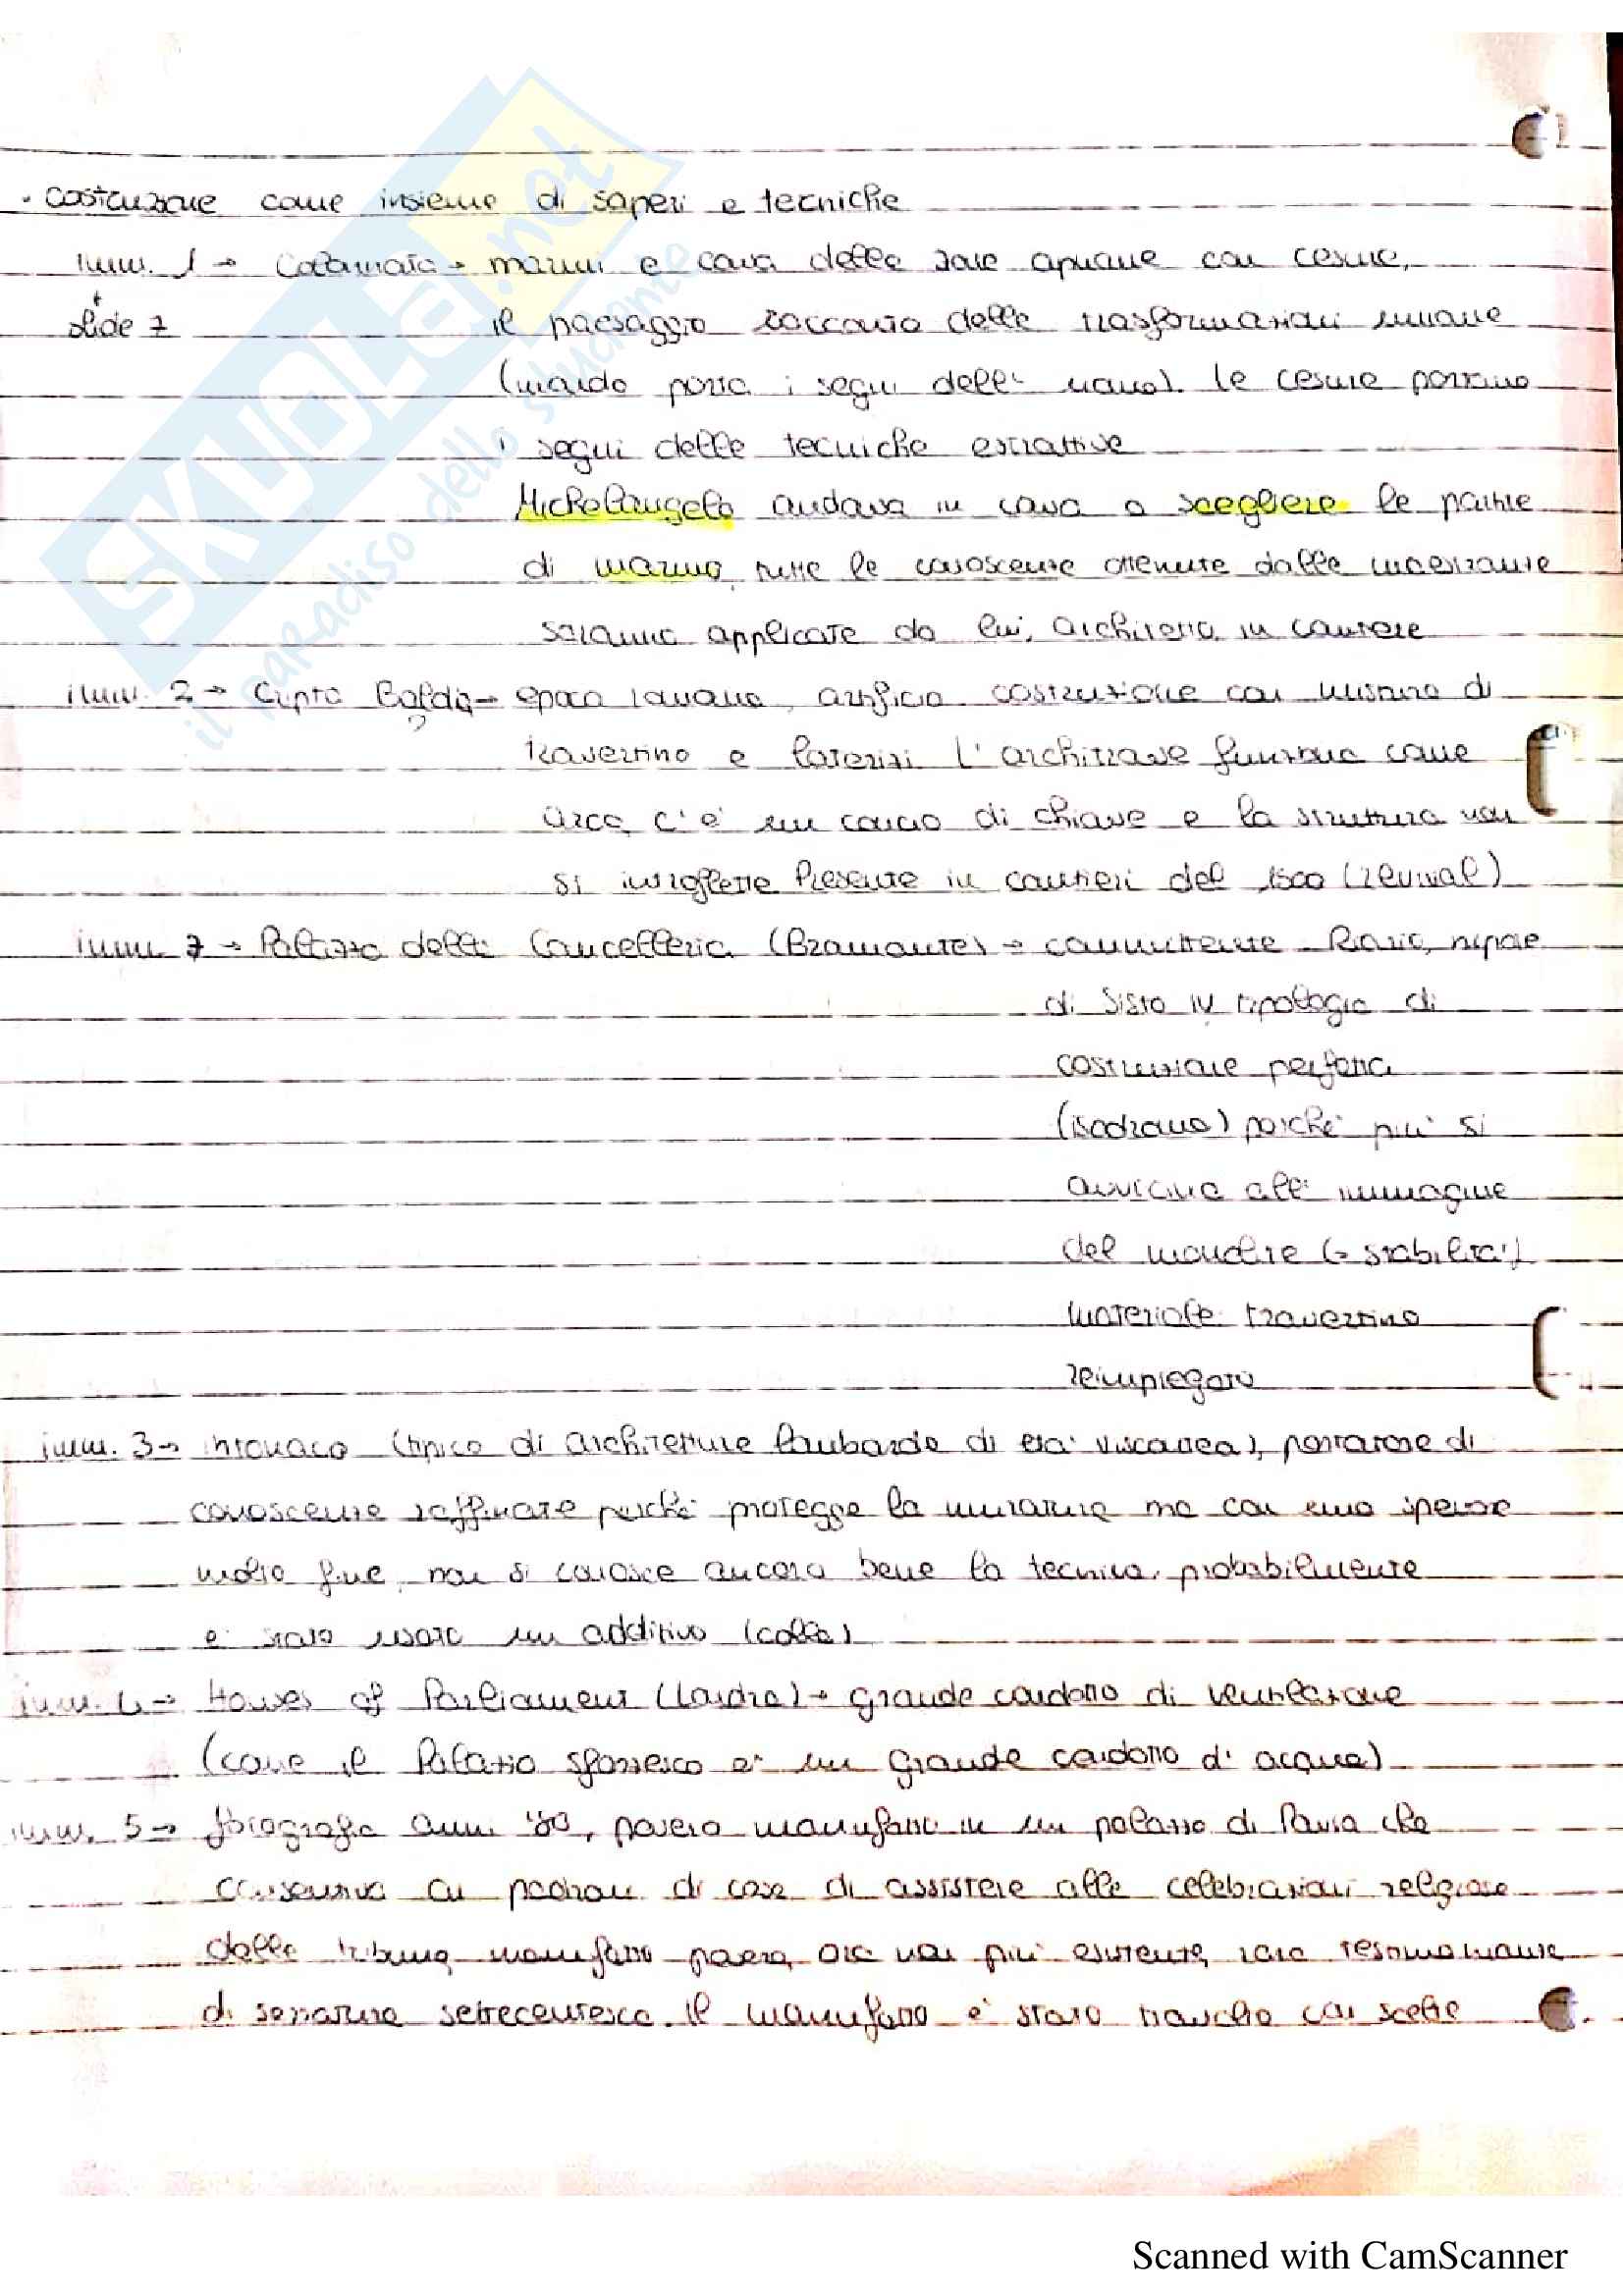 SKUOLA.net
il paradiso dello studente
• costruzione come insieme di saperi e tecniche
imm. 1 → Colonnata → marmi e cava delle zone apuane con cesure,
slide 7 il paesaggio racconta delle trasformazioni umane
(mondo porta i segni dell' uomo). le cesure portano
i segni delle tecniche estrattive
Michelangelo andava in cava a scegliere le partite
di marmo, tutte le conoscenze ottenute dalle maestranze
saranno applicate da lui, architetto in cantiere
imm. 2 → Cripta Balda → epoca romana, artificio costruzione con misura di
?
travertino e laterizi l'architrave funziona come
arco, c'è un concio di chiave e la struttura non
si inflette Presente in cantieri del 1500 (revival)
imm. 7 → Palazzo della Cancelleria (Bramante) → committente Riario, nipote
di Sisto IV tipologia di
costruzione perfetta
(isodromo) perché più si
avvicina all' immagine
del monolite (→ stabilità)
materiale: travertino
reimpiegato
imm. 3 → intonaco (tipico di architetture lombarde di età viscontea), portatore di
conoscenze raffinate perché protegge la muratura ma con uno spessore
molto fine, non si conosce ancora bene la tecnica, probabilmente
è stato usato un additivo (colla)
imm. 4 → Houses of Parliament (Londra) → grande condotto di ventilazione
(come il Palazzo sforzesco è un grande condotto d' acqua)
imm. 5 → fotografia anni '80, povero manufatto in un palazzo di Pavia che
consentiva ai padroni di casa di assistere alle celebrazioni religiose
dalla tribuna, manufatto povero, ora non più esistente, rara testimonianza
di serratura settecentesca. Il manufatto è stato con scelte
Scanned with CamScanner